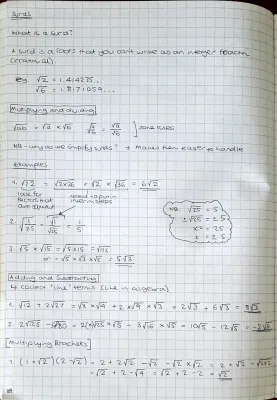 Surds
What is a surd?
A surd is a roots that you cant write as an integer fraction
(irrational).
eg √2 = 1.414275...
√6 = 1.8171059...
Multiplying and dividing
√ab = √a × √b √a/√b = √a/√b ] same rules
NB - why do we simplify surds? ± makes them easier to handle
Examples
1. √72 = √2×36 = √2 × √36 = 6√2
look for
factors that
are square
need to pain
interm steps
2. √1/25 = √1/√25 = 1/5
NB: √25 = 5
± √25 = ± 5
x² = 25
± = ± 5
3. √5 × √15 = √5×15 = √75
or = √5 × √3 × √5 = 5√3
Adding and Subtracting
↳ collect 'like' terms (like in algebra)
1. √12 + 2√27 = √3 × √4 + 2 × √9 × √3 = 2√3 + 6√3 = 8√3
2. 2√125 - 3√80 = 2×√25 × √5 - 3√16 × √5 = 10√5 - 12√5 = -2√5
Multiplying Brackets
1. (1+√2)(2-√2) = 2 + 2√2 - √2 - √2 × √2 = 2 + √2 - √2×2
= √2 + 2 - √4 = √2 + 2 - 2 = √2